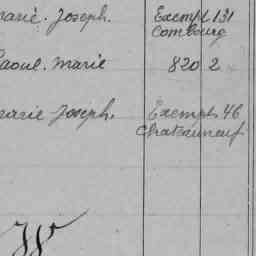 marie. Joseph. Exempt 131
Combourg
Raoul. Marie 820 2
marie Joseph. Exempt 46
Chateauneuf
W